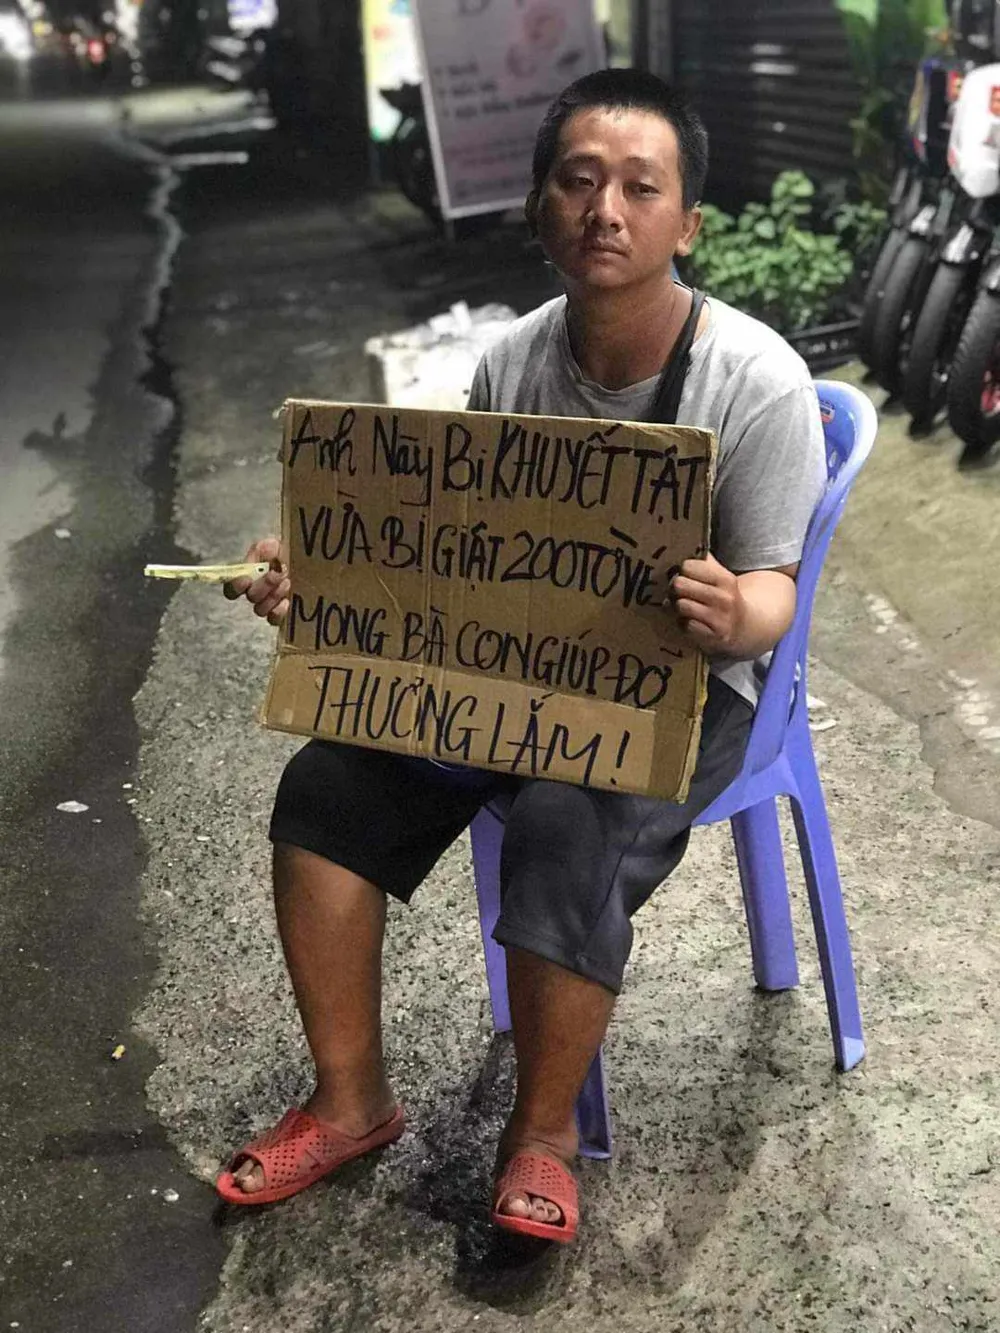 Anh Này Bị KHUYẾT TẬT
VỪA BỊ GIẬT 200 TỜ VÉ
MONG BÀ CON GIÚP ĐỠ
THƯƠNG LẮM!